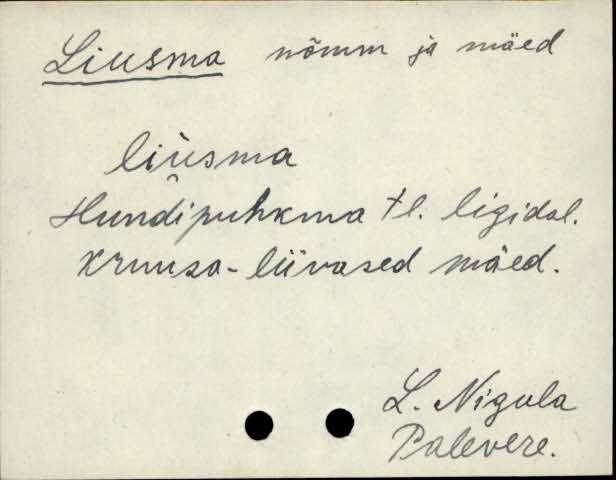 Liusma nõmm ja mäed
liùsma
Hundipuhkma tl. ligidal.
Kruusa-liivased mäed.
L. Nigula
Palevere.